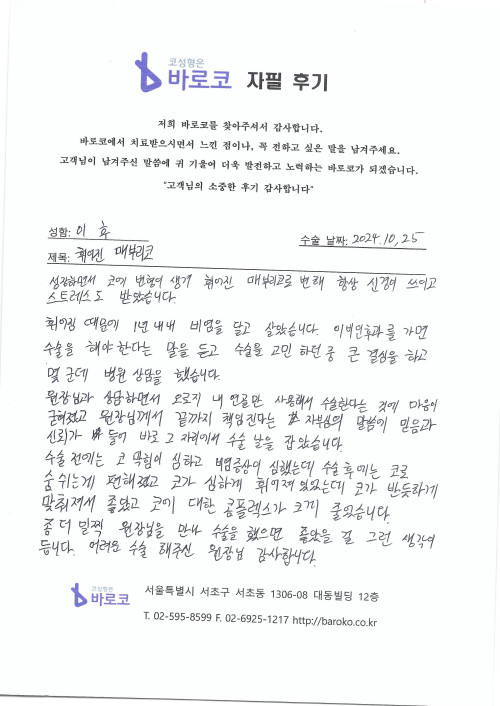 코성형은
바로코 자필 후기
저희 바로코를 찾아주셔서 감사합니다.
바로코에서 치료받으시면서 느낀 점이나, 꼭 전하고 싶은 말을 남겨주세요.
고객님이 남겨주신 말씀에 귀 기울여 더욱 발전하고 노력하는 바로코가 되겠습니다.
"고객님의 소중한 후기 감사합니다"
성함: 이 후
수술 날짜: 2024.10.25
제목: 휘어진 매부리코
성장하면서 코에 변형이 생겨 휘어진 매부리코로 변해 항상 신경이 쓰이고
스트레스도 받았습니다.
휘어짐 때문에 1년 내내 비염을 달고 살았습니다. 이비인후과를 가면
수술을 해야한다는 말을 듣고 수술을 고민 하던 중 큰 결심을 하고
몇 군데 병원 상담을 했습니다.
원장님과 상담하면서 오로지 내 연골만 사용해서 수술한다는 것에 마음이
굳혀졌고 원장님께서 끝까지 책임진다는 자부심의 말씀이 믿음과
신뢰가 들어 바로 그 자리에서 수술 날을 잡았습니다.
수술 전에는 코 막힘이 심하고 비염증상이 심했는데 수술 후에는 코로
숨쉬는게 편해졌고 코가 심하게 휘어져 있었는데 코가 반듯하게
맞춰져서 좋았고 코에 대한 콤플렉스가 크게 줄었습니다.
좀 더 일찍 원장님을 만나 수술을 했으면 좋았을 걸 그런 생각이
듭니다. 어려운 수술 해주신 원장님 감사합니다.
코성형은
바로코
서울특별시 서초구 서초동 1306-08 대동빌딩 12층
T. 02-595-8599 F. 02-6925-1217 http://baroko.co.kr